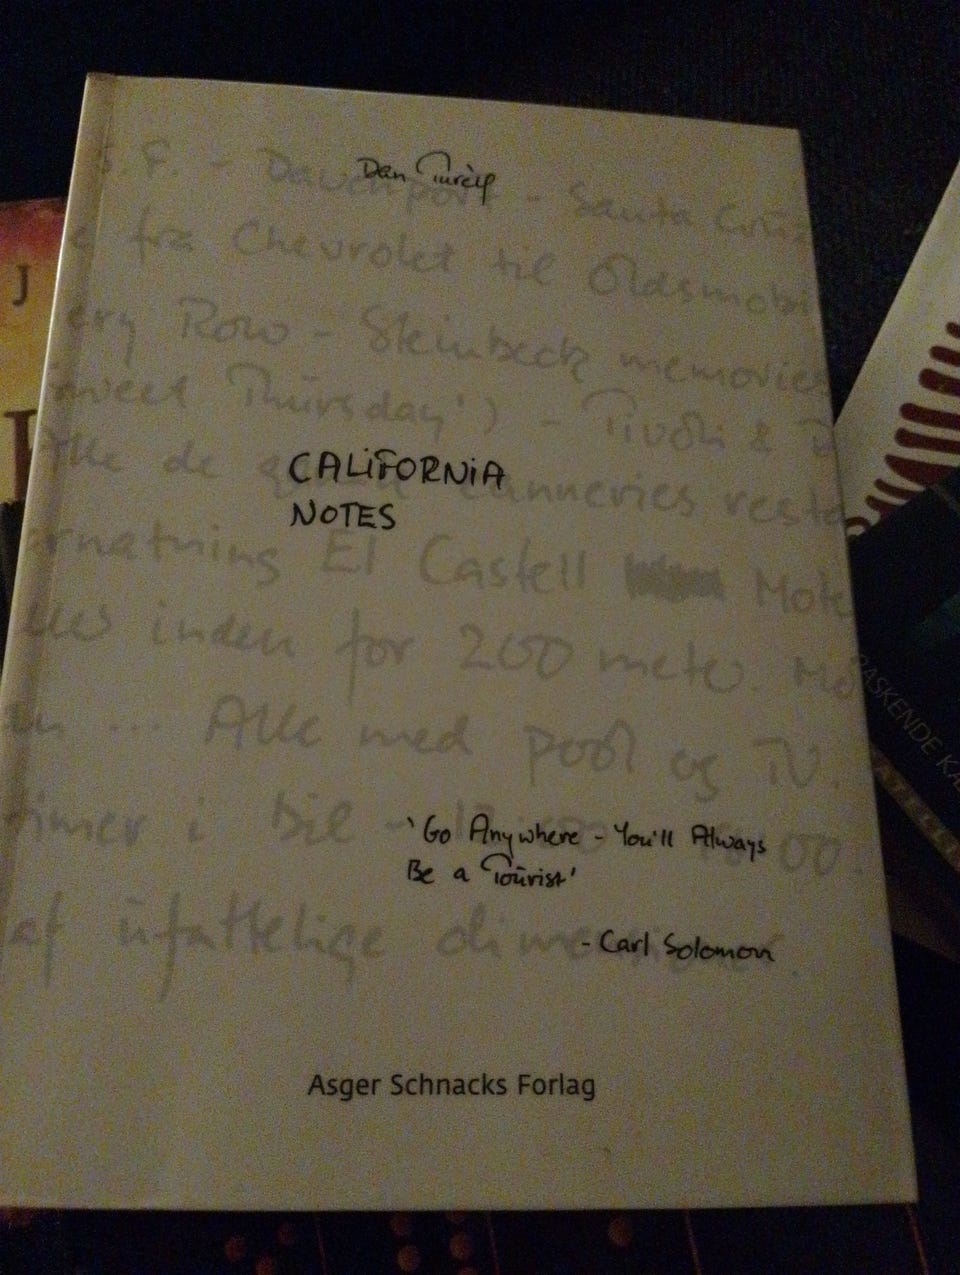 Dan Turèll
S.F. - Davenport - Santa Cruz
fra Chevrolet til Oldsmobi
ery Row - Steinbeck memories
weet Thursday') - Tivoli &
Alle de canneries resta
CALiFORNiA
NOTES
ernatning El Castell Mote
inden for 200 meter. Mo
... Alle med pool og TV.
timer i bil -
'Go Anywhere - You'll Always
Be a Tourist'
af ufattelige dimensioner.
- Carl Solomon
Asger Schnacks Forlag
J
RASKENDE KA